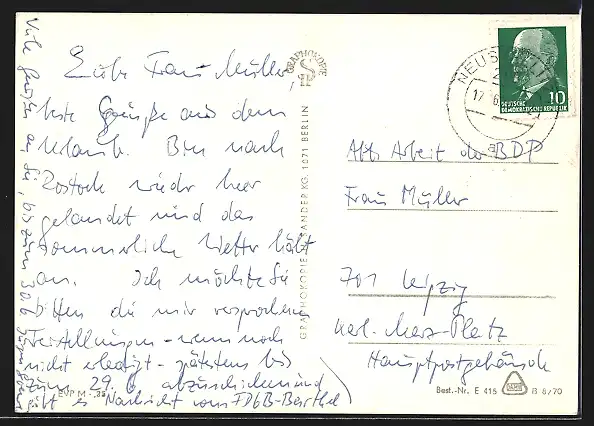 Liebe Frau Müller,
beste Grüße aus dem
Urlaub. Bin nach
Rostock wieder hier
gelandet und das
sommerliche Wetter hält
an. Ich möchte Sie
bitten die mir versprochenen
Feistellungen - wenn noch
nicht erledigt - spätestens bis
zum 29.6 abzuschicken und
gibt es Nachricht vom FDGB-Berthel
Viele Grüße an Sie, bis zum 30.6
EVP M -,35
GRAPHOKOPIE
GRAPHOKOPIE H. SANDER KG, 1071 BERLIN
NEUST
17. 6.
a
10
DEUTSCHE
DEMOKRATISCHE REPUBLIK
Abt. Arbeit der BDP
Frau Müller
701 Leipzig
Karl-Marx-Platz
Hauptpostgebäude
Best.-Nr. E 415
B 8/70